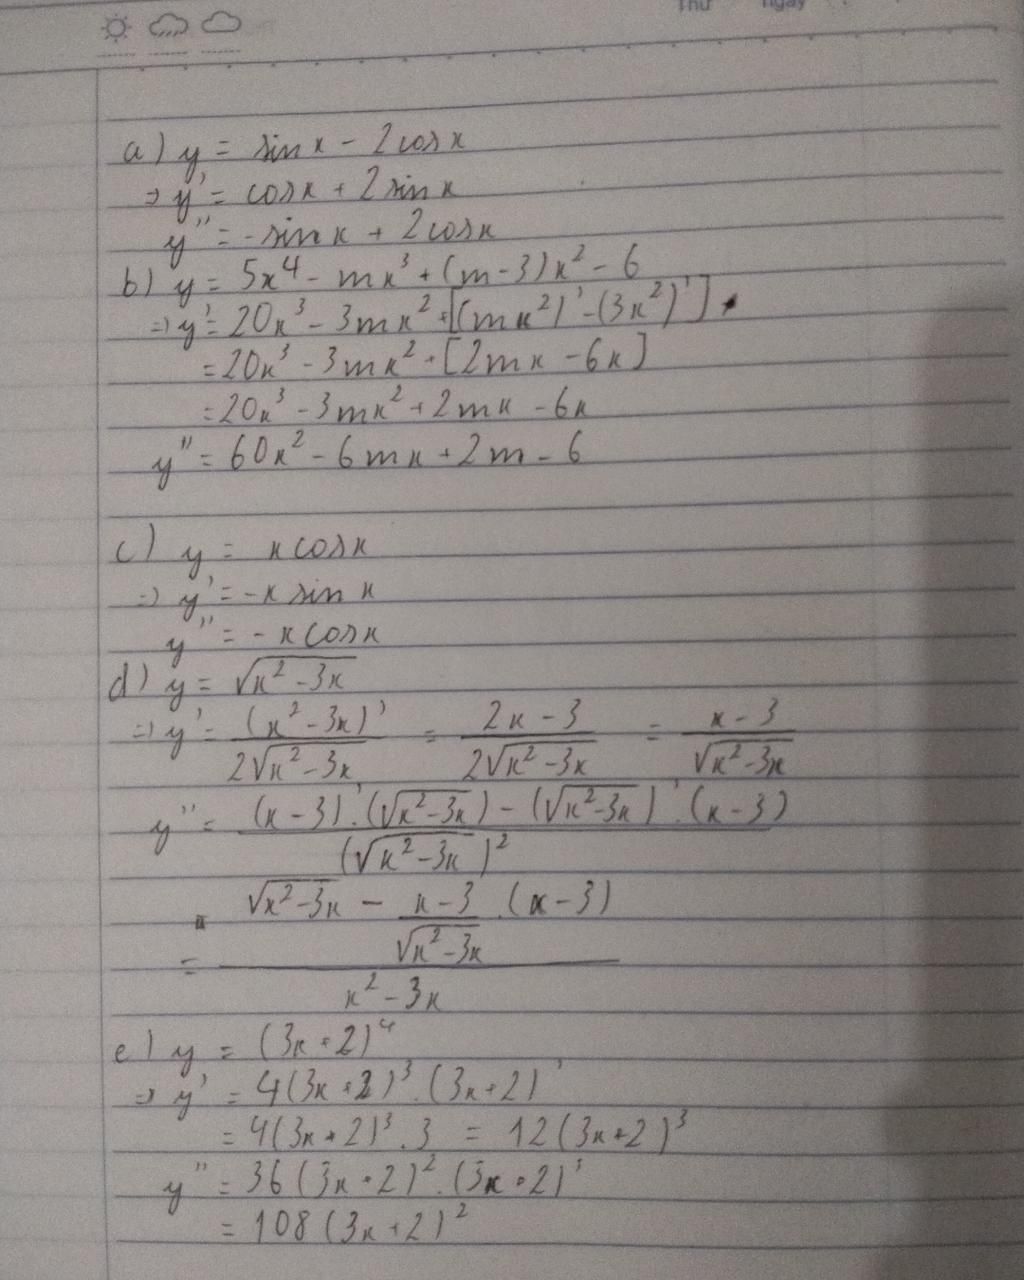 Thứ ngày
a) y = sin x - 2 cos x
⇒ y' = cos x + 2 sin x
y'' = - sin x + 2 cos x
b) y = 5x⁴ - mx³ + (m - 3)x² - 6
⇒ y' = 20x³ - 3mx² + [(mx²)' - (3x²)']
= 20x³ - 3mx² + [2mx - 6x]
= 20x³ - 3mx² + 2mx - 6x
y'' = 60x² - 6mx + 2m - 6
c) y = x cos x
⇒ y' = - x sin x
y'' = - x cos x
d) y = √(x² - 3x)
⇒ y' = (x² - 3x)' / 2√(x² - 3x) = 2x - 3 / 2√(x² - 3x) = x - 3 / √(x² - 3x)
y'' = (x - 3)' . (√(x² - 3x)) - (√(x² - 3x))' . (x - 3) / (√(x² - 3x))²
= √(x² - 3x) - x - 3 / √(x² - 3x) . (x - 3) / x² - 3x
e) y = (3x + 2)⁴
⇒ y' = 4(3x + 2)³ . (3x + 2)'
= 4(3x + 2)³ . 3 = 12(3x + 2)³
y'' = 36(3x + 2)² . (3x + 2)'
= 108(3x + 2)²